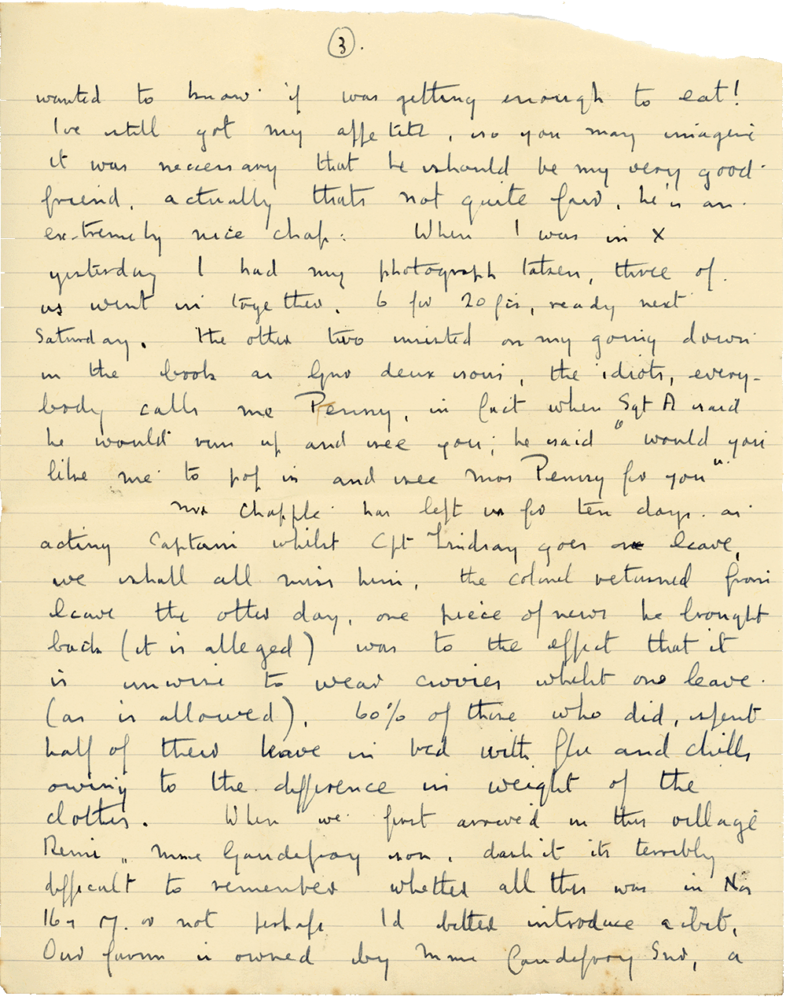 3.
wanted to know if was getting enough to eat!
I've still got my appetite, so you may imagine
it was neccessary that he should be my very good
friend, actually thats not quite fair, he's an
extremely nice chap. When I was in X
yesterday I had my photograph taken, three of
us went in together. 6 for 20 frs, ready next
Saturday. The other two insisted on my going down
in the book as deux sous, the idiots, every-
body calls me Penny, in fact when Sgt A said
he would run up and see you; he said "would you
like me to pop in and see Mrs Penny for you"
Mr Chapple has left us for ten days as
acting Captain whilst Cpt Lindsay goes on leave,
we shall all miss him, the colonel returned from
leave the other day, one piece of news he brought
back (it is alleged) was to the effect that it
is unwise to wear civvies whilst one leave
(as is allowed), 60% of those who did, spent
half of their leave in bed with flu and chills
owing to the difference in weight of the
clothes. When we first arrived in this village
Remi, Mme Gaudefroy son, dash it its terribly
difficult to remember whether all this was in No
16 or 17. or not perhaps I'd better introduce a bit,
Our farm is owned by Mme Gaudefroy Snr, a